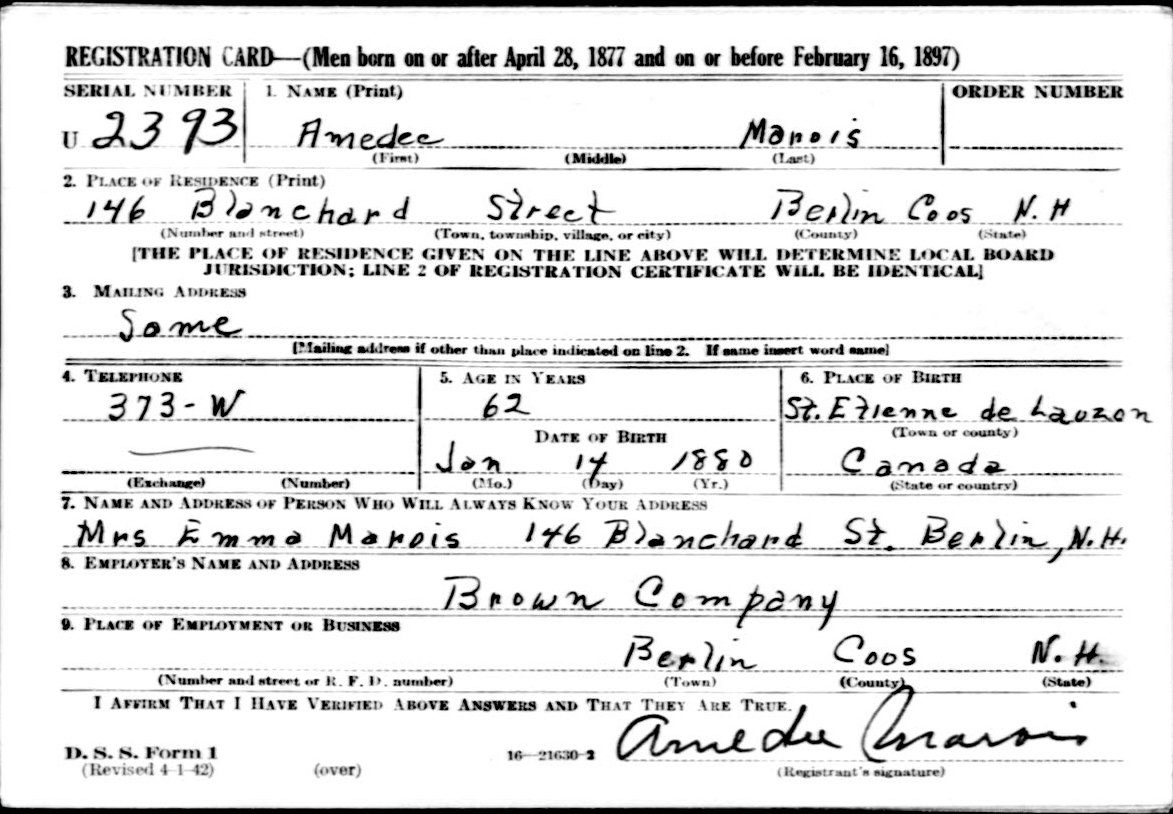 REGISTRATION CARD—(Men born on or after April 28, 1877 and on or before February 16, 1897)
SERIAL NUMBER 1. NAME (Print) ORDER NUMBER
U 2393 Amedee Marois
(First) (Middle) (Last)
2. PLACE OF RESIDENCE (Print)
146 Blanchard Street Berlin Coos N.H
(Number and street) (Town, township, village, or city) (County) (State)
[THE PLACE OF RESIDENCE GIVEN ON THE LINE ABOVE WILL DETERMINE LOCAL BOARD
JURISDICTION; LINE 2 OF REGISTRATION CERTIFICATE WILL BE IDENTICAL]
3. MAILING ADDRESS
Same
[Mailing address if other than place indicated on line 2. If same insert word same]
4. TELEPHONE 5. AGE IN YEARS 6. PLACE OF BIRTH
373-W 62 St. Etienne de Lauzon
DATE OF BIRTH (Town or county)
Jan 14 1880 Canada
(Exchange) (Number) (Mo.) (Day) (Yr.) (State or country)
7. NAME AND ADDRESS OF PERSON WHO WILL ALWAYS KNOW YOUR ADDRESS
Mrs Emma Marois 146 Blanchard St. Berlin, N.H.
8. EMPLOYER'S NAME AND ADDRESS
Brown Company
9. PLACE OF EMPLOYMENT OR BUSINESS
Berlin Coos N.H.
(Number and street or R. F. D. number) (Town) (County) (State)
I AFFIRM THAT I HAVE VERIFIED ABOVE ANSWERS AND THAT THEY ARE TRUE.
D. S. S. Form 1 16—21630-2 Amedee Marois
(Revised 4-1-42) (over) (Registrant's signature)